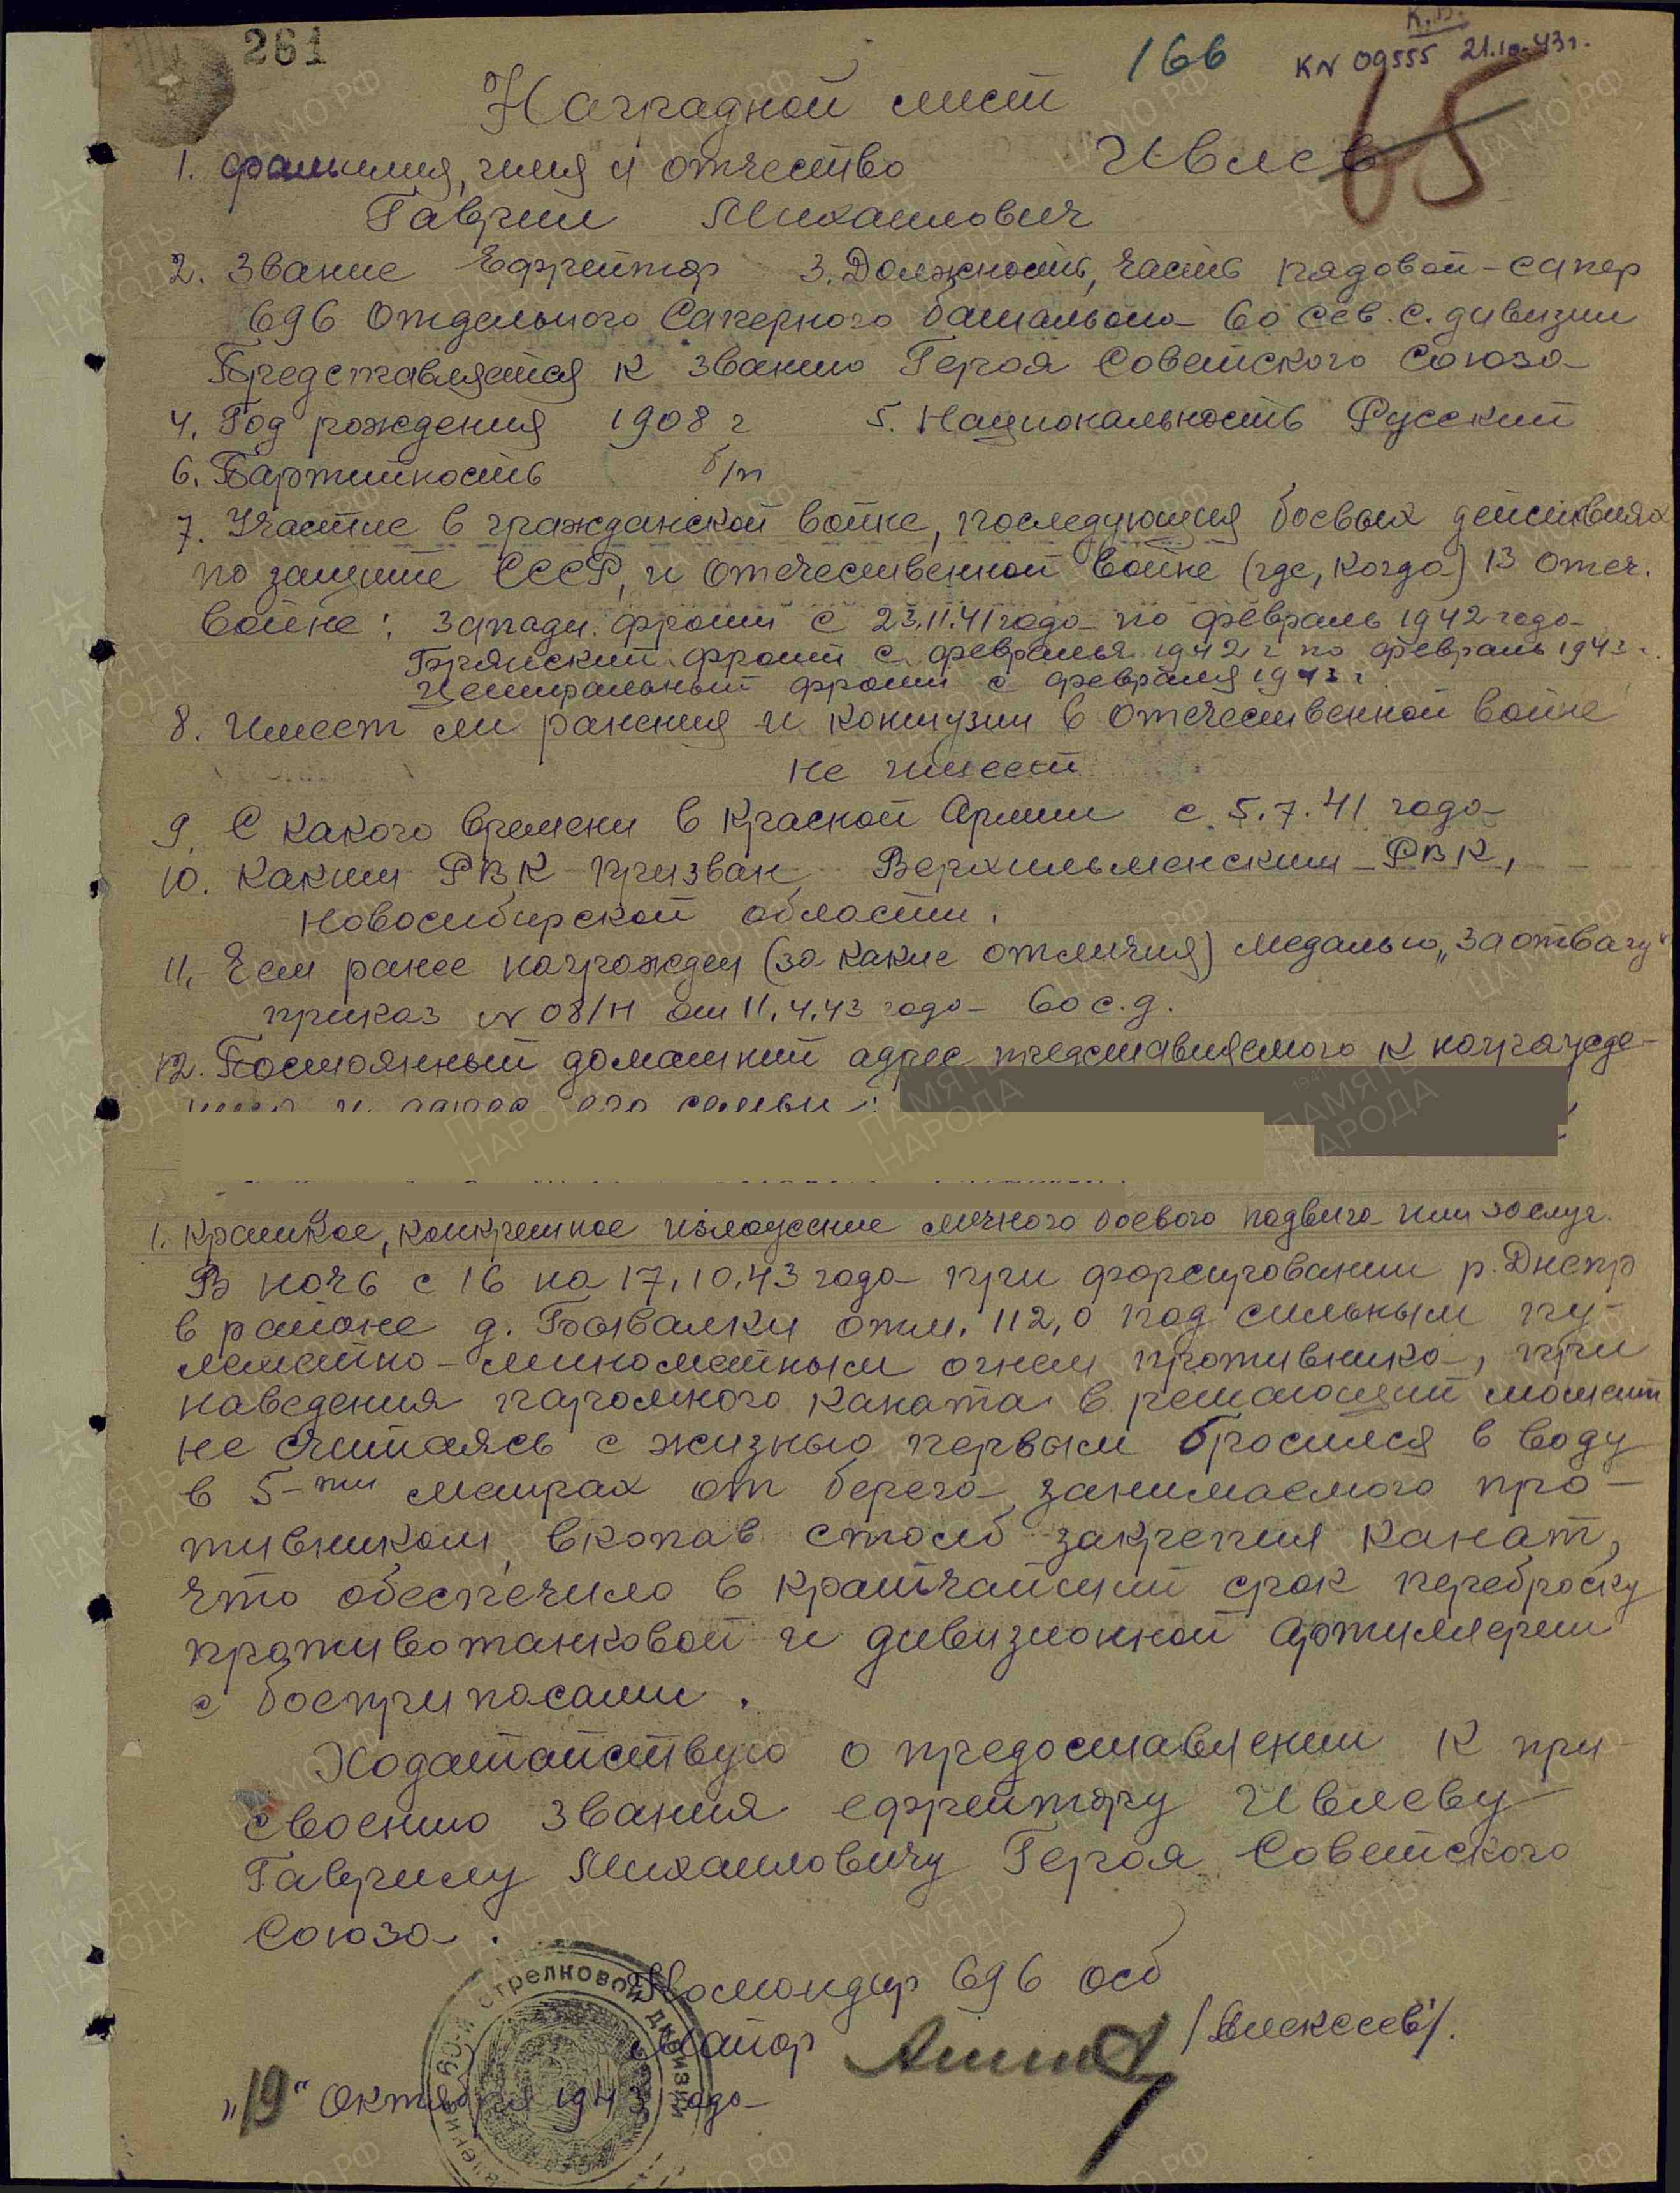 261
166
К.В.
КN 09555 21.10.43г.
65
Наградной лист
1. Фамилия, имя и отчество Ивлев
Гаврил Михаилович
2. Звание Ефрейтор 3. Должность, часть рядовой-сапер
696 Отдельного Саперного батальона 60 Сев. с. дивизии
Представляется к званию Героя Советского Союза
4. Год рождения 1908 г 5. Национальность Русский
6. Партийность б/п
7. Участие в гражданской войне, последующия боевых действиях
по защите СССР, и отечественной войне (где, когда) В Отеч.
войне: Западн. фронт с 23.11.41 года по февраль 1942 года
Брянский фронт с февраля 1942 г по февраль 1943 г.
Центральный фронт с февраля 1943 г.
8. Имеет ли ранения и контузии в отечественной войне
не имеет
9. С какого времени в Красной Армии с 5.7.41 года
10. Каким РВК призван Верхильменским РВК,
Новосибирской области.
11. Чем ранее награжден (за какие отличия) медалью „За отвагу"
приказ N 08/Н от 11.4.43 года 60 с.д.
12. Постоянный домашний адрес представляемого к награжде-
ния и адрес его семьи:
1. Краткое, конкретное изложение личного боевого подвига или заслуг.
В ночь с 16 на 17.10.43 года при форсировании р. Днепр
в районе д. Бывалки отм. 112,0 под сильным пу-
леметно-минометным огнем противника, при
наведения паромного каната в решающий момент
не считаясь с жизнью первым бросился в воду
в 5-ти метрах от берега занимаемого про-
тивником, вкопав столб закрепил канат,
что обеспечило в кратчайший срок переброску
противотанковой и дивизионной артиллерии
с боеприпасами.
Ходатайствую о предоставлении к при-
своению звания ефрейтору Ивлеву
Гаврилу Михаиловичу Героя Советского
Союза.
Командир 696 осб
Майор /Алексеев/.
„19" Октября 1943 года
стрелковой дивизии